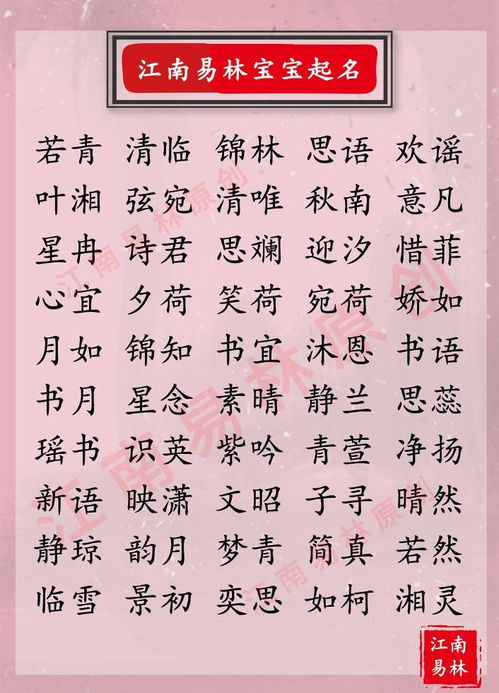 江南易林宝宝起名
若青 清临 锦林 思语 欢谣
叶湘 弦宛 清唯 秋南 意凡
星冉 诗君 思斓 迎汐 惜菲
心宜 夕荷 笑荷 宛荷 娇如
月如 锦知 书宜 沐恩 书语
书月 星念 素晴 静兰 思蕊
瑶书 识英 紫吟 青萱 净扬
新语 映潇 文昭 子寻 晴然
静琼 韵月 梦青 简真 若然
临雪 景初 奕思 如柯 湘灵
江南易林原创
江南易林原创
江南易林原创
江南
易林